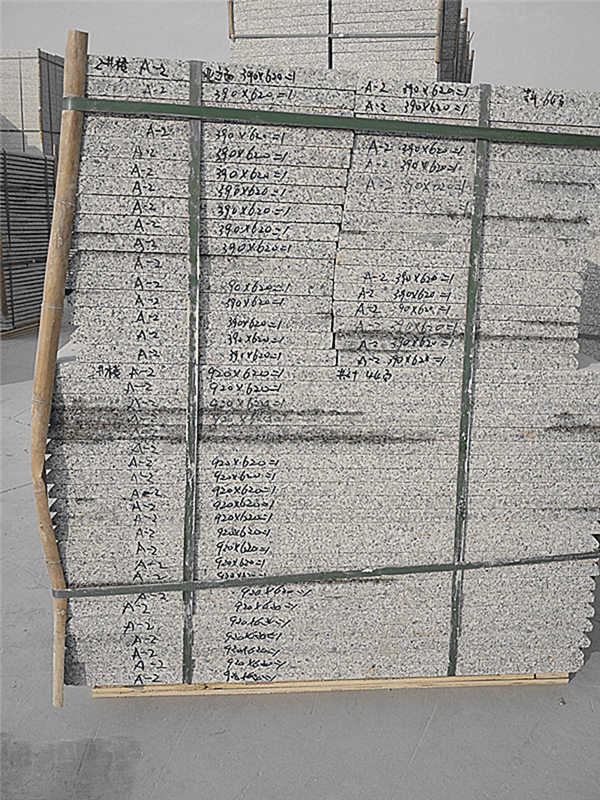 2#楼 A-2 北立面 390×620=1
A-2 390×620=1 A-2 390×620=1
A-2 390×620=1
A-2 390×620=1 A-2 390×620=1
A-2 390×620=1 A-2 390×620=1
A-2 390×620=1 A-2 390×620=1
A-2 390×620=1
A-2 390×620=1
A-2 390×620=1
A-2 390×620=1
A-2
A-2 390×620=1 A-2 390×620=1
A-2 390×620=1 A-2 390×620=1
A-2 390×620=1 A-2 390×620=1
A-2 390×620=1 A-2 390×620=1
A-2 390×620=1 A-2 390×620=1
A-2 390×620=1
#楼 A-2 920×620=1 共计44
A-2 920×620=1
A-2 920×620=1
A-2
A-2
A-2
A-2 920×620=1
A-2 920×620=1
A-2 920×620=1
A-2 920×620=1
A-2 920×620=1
A-2 920×620=1
A-2 920×620=1
A-2 920×620=1
A-2 920×620=1
A-2 920×620=1
A-2 920×620=1
A-2 920×620=1
A-2 920×620=1
A-2 920×620=1
A-2 920×620=1
A-2 920×620=1